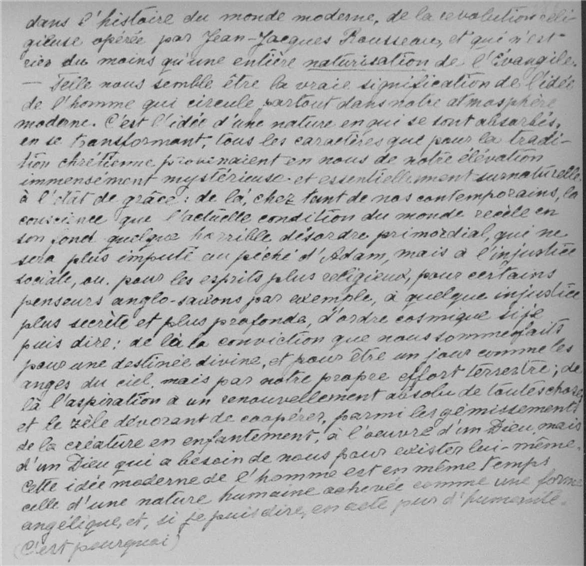 dans l'histoire du monde moderne, de la révolution reli-
gieuse opérée par Jean-Jacques Rousseau, et qui n'est
rien du moins qu'une entière naturisation de l'Evangile.
— Telle nous semble être la vraie signification de l'idée
de l'homme qui circule partout dans notre atmosphère
moderne. C'est l'idée d'une nature en qui se sont absorbés,
en se transformant, tous les caractères que pour la tradi-
tion chrétienne provenaient en nous de notre élévation
immensément mystérieuse et essentiellement surnaturelle
à l'état de grâce : de là, chez tant de nos contemporains, la
conscience que l'actuelle condition du monde recèle en
son fond quelque horrible désordre primordial, qui ne
sera plus imputé au péché d'Adam, mais à l'injustice
sociale, ou pour les esprits plus religieux, pour certains
penseurs anglo-saxons par exemple, à quelque injustice
plus secrète et plus profonde, d'ordre cosmique si je
puis dire ; de là la conviction que nous sommes faits
pour une destinée divine, et pour être un jour comme les
anges du ciel, mais par notre propre effort terrestre ; de
là l'aspiration à un renouvellement absolu de toutes choses,
et le zèle dévorant de coopérer, parmi les gémissements
de la créature en enfantement, à l'oeuvre d'un Dieu, mais
d'un Dieu qui a besoin de nous pour exister lui-même.
Cette idée moderne de l'homme est en même temps
celle d'une nature humaine achevée comme une forme
angélique, et, si je puis dire, en acte pur d'humanité.
(C'est pourquoi)